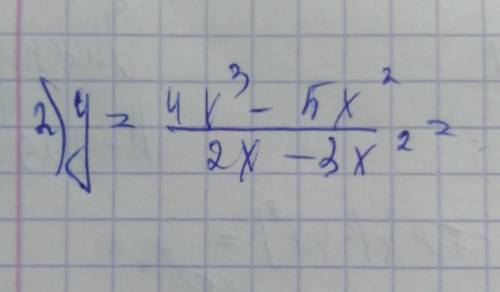 2) y = (4x³ - 5x²) / (2x - 3x²) =